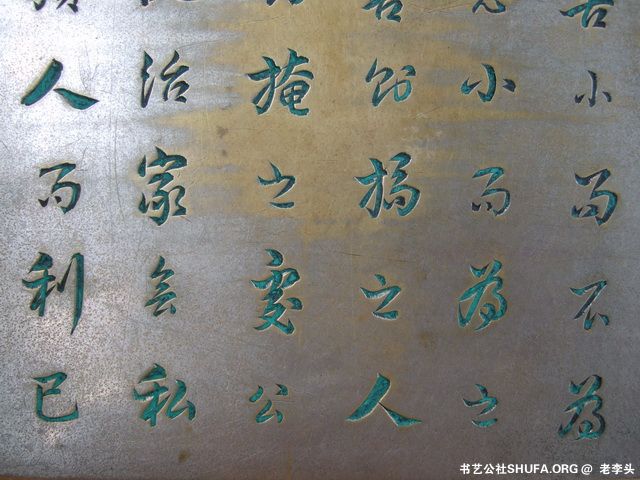 善小而不為
小而為之
善則揚之人
掩之處公
治家無私
人而利己
书艺公社SHUFA.ORG @ 老李头